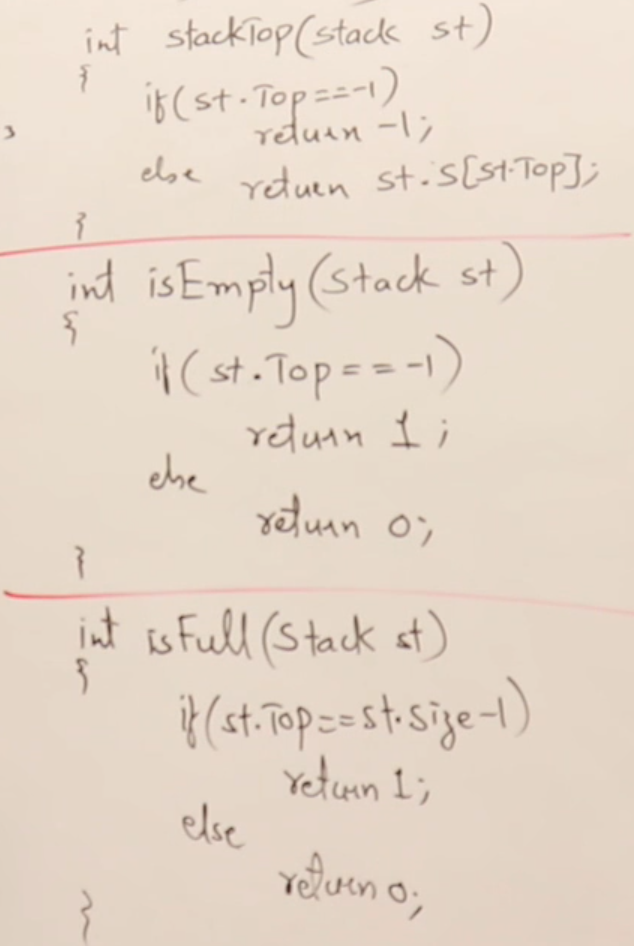 int stackTop(stack st)
{
if(st.Top==-1)
return -1;
else return st.S[st.Top];
}
int isEmpty(Stack st)
{
if(st.Top==-1)
return 1;
else
return 0;
}
int isFull(Stack st)
{
if(st.Top==st.size-1)
return 1;
else
return 0;
}